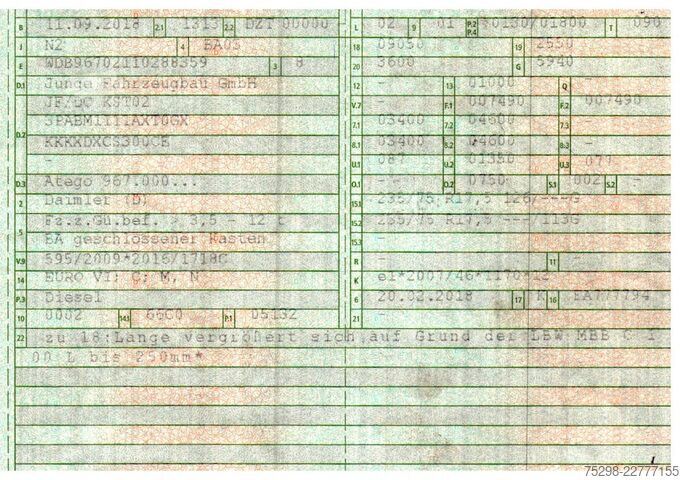 B 11.09.2018 2.1 1313 2.2 DZT 00000 L 02 9 01 P.2 P.4 0130/01800 T 090
J N2 4 BA03 18 09050 19 2550
E WDB96702110288359 3 8 20 3600 G 5940
D.1 Junge Fahrzeugbau GmbH 12 - 13 01000 Q -
JF/DC KST02 V.7 - F.1 007490 F.2 007490
D.2 3PABM1111AXT0GX 7.1 03400 7.2 04600 7.3 -
KKKKDXCS300CE 8.1 03400 8.2 04600 8.3 -
- U.1 087 U.2 01350 U.3 077
D.3 Atego 967.000... O.1 - O.2 0750 S.1 002 S.2 -
2 Daimler (D) 15.1 235/75 R17,5 126/---G
5 Fz.z.Gü.bef. > 3,5 - 12 t 15.2 235/75 R17,5 ---/113G
BA geschlossener Kasten 15.3 -
V.9 595/2009*2016/1718C R - 11 -
14 EURO VI; C; M, N K e1*2007/46*1170*12
P.3 Diesel 6 20.02.2018 17 K 16 EA777794
10 0002 14.1 66C0 P.1 05132 21 -
22 zu 18:Länge vergrößert sich auf Grund der LBW MBB C 1
00 L bis 250mm*
75298-22777155